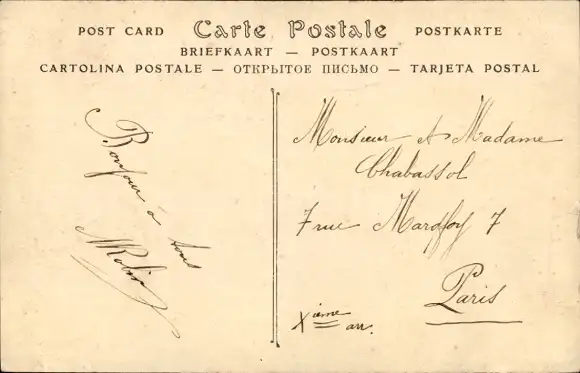 POST CARD Carte Postale POSTKARTE
BRIEFKAART — POSTKAART
CARTOLINA POSTALE — ОТКРЫТОЕ ПИСЬМО — TARJETA POSTAL
Bonjour à tous
Monsieur et Madame
Chabassol
7 rue 7
Paris
Xième arr.